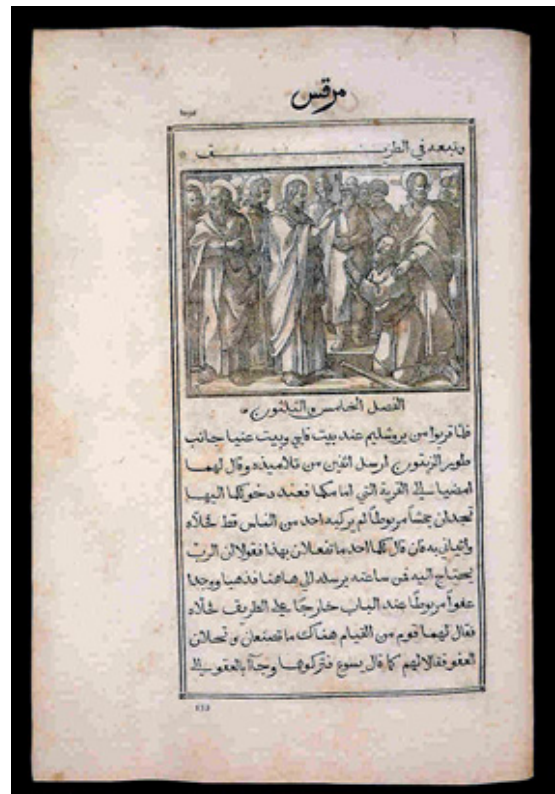 مرقس
وتبعه في الطريق
الفصل الخامس والثلثون
فلما قربوا من يروشليم عند بيت فاجي وبيت عنيا جانب
طور الزيتون ارسل اثنين من تلاميذه وقال لهما
امضيا الى القرية التي امامكما فعند دخولكما اليها
تجدان جحشاً مربوطاً لم يركبه احد من الناس قط حُلّاه
وأتياني به فان قال لكما احد ما تفعلان بهذا فقولا ان الرب
يحتاج اليه فمن ساعته يرسله الى هاهنا فذهبا ووجدا
عفواً مربوطاً عند الباب خارجًا على الطريق فحلّاه
فقال لهما قوم من القيام هناك ما تصنعان وتحلان
العفو فقالا لهم كما قال يسوع فتركوهما وجاآ بالعفو الى